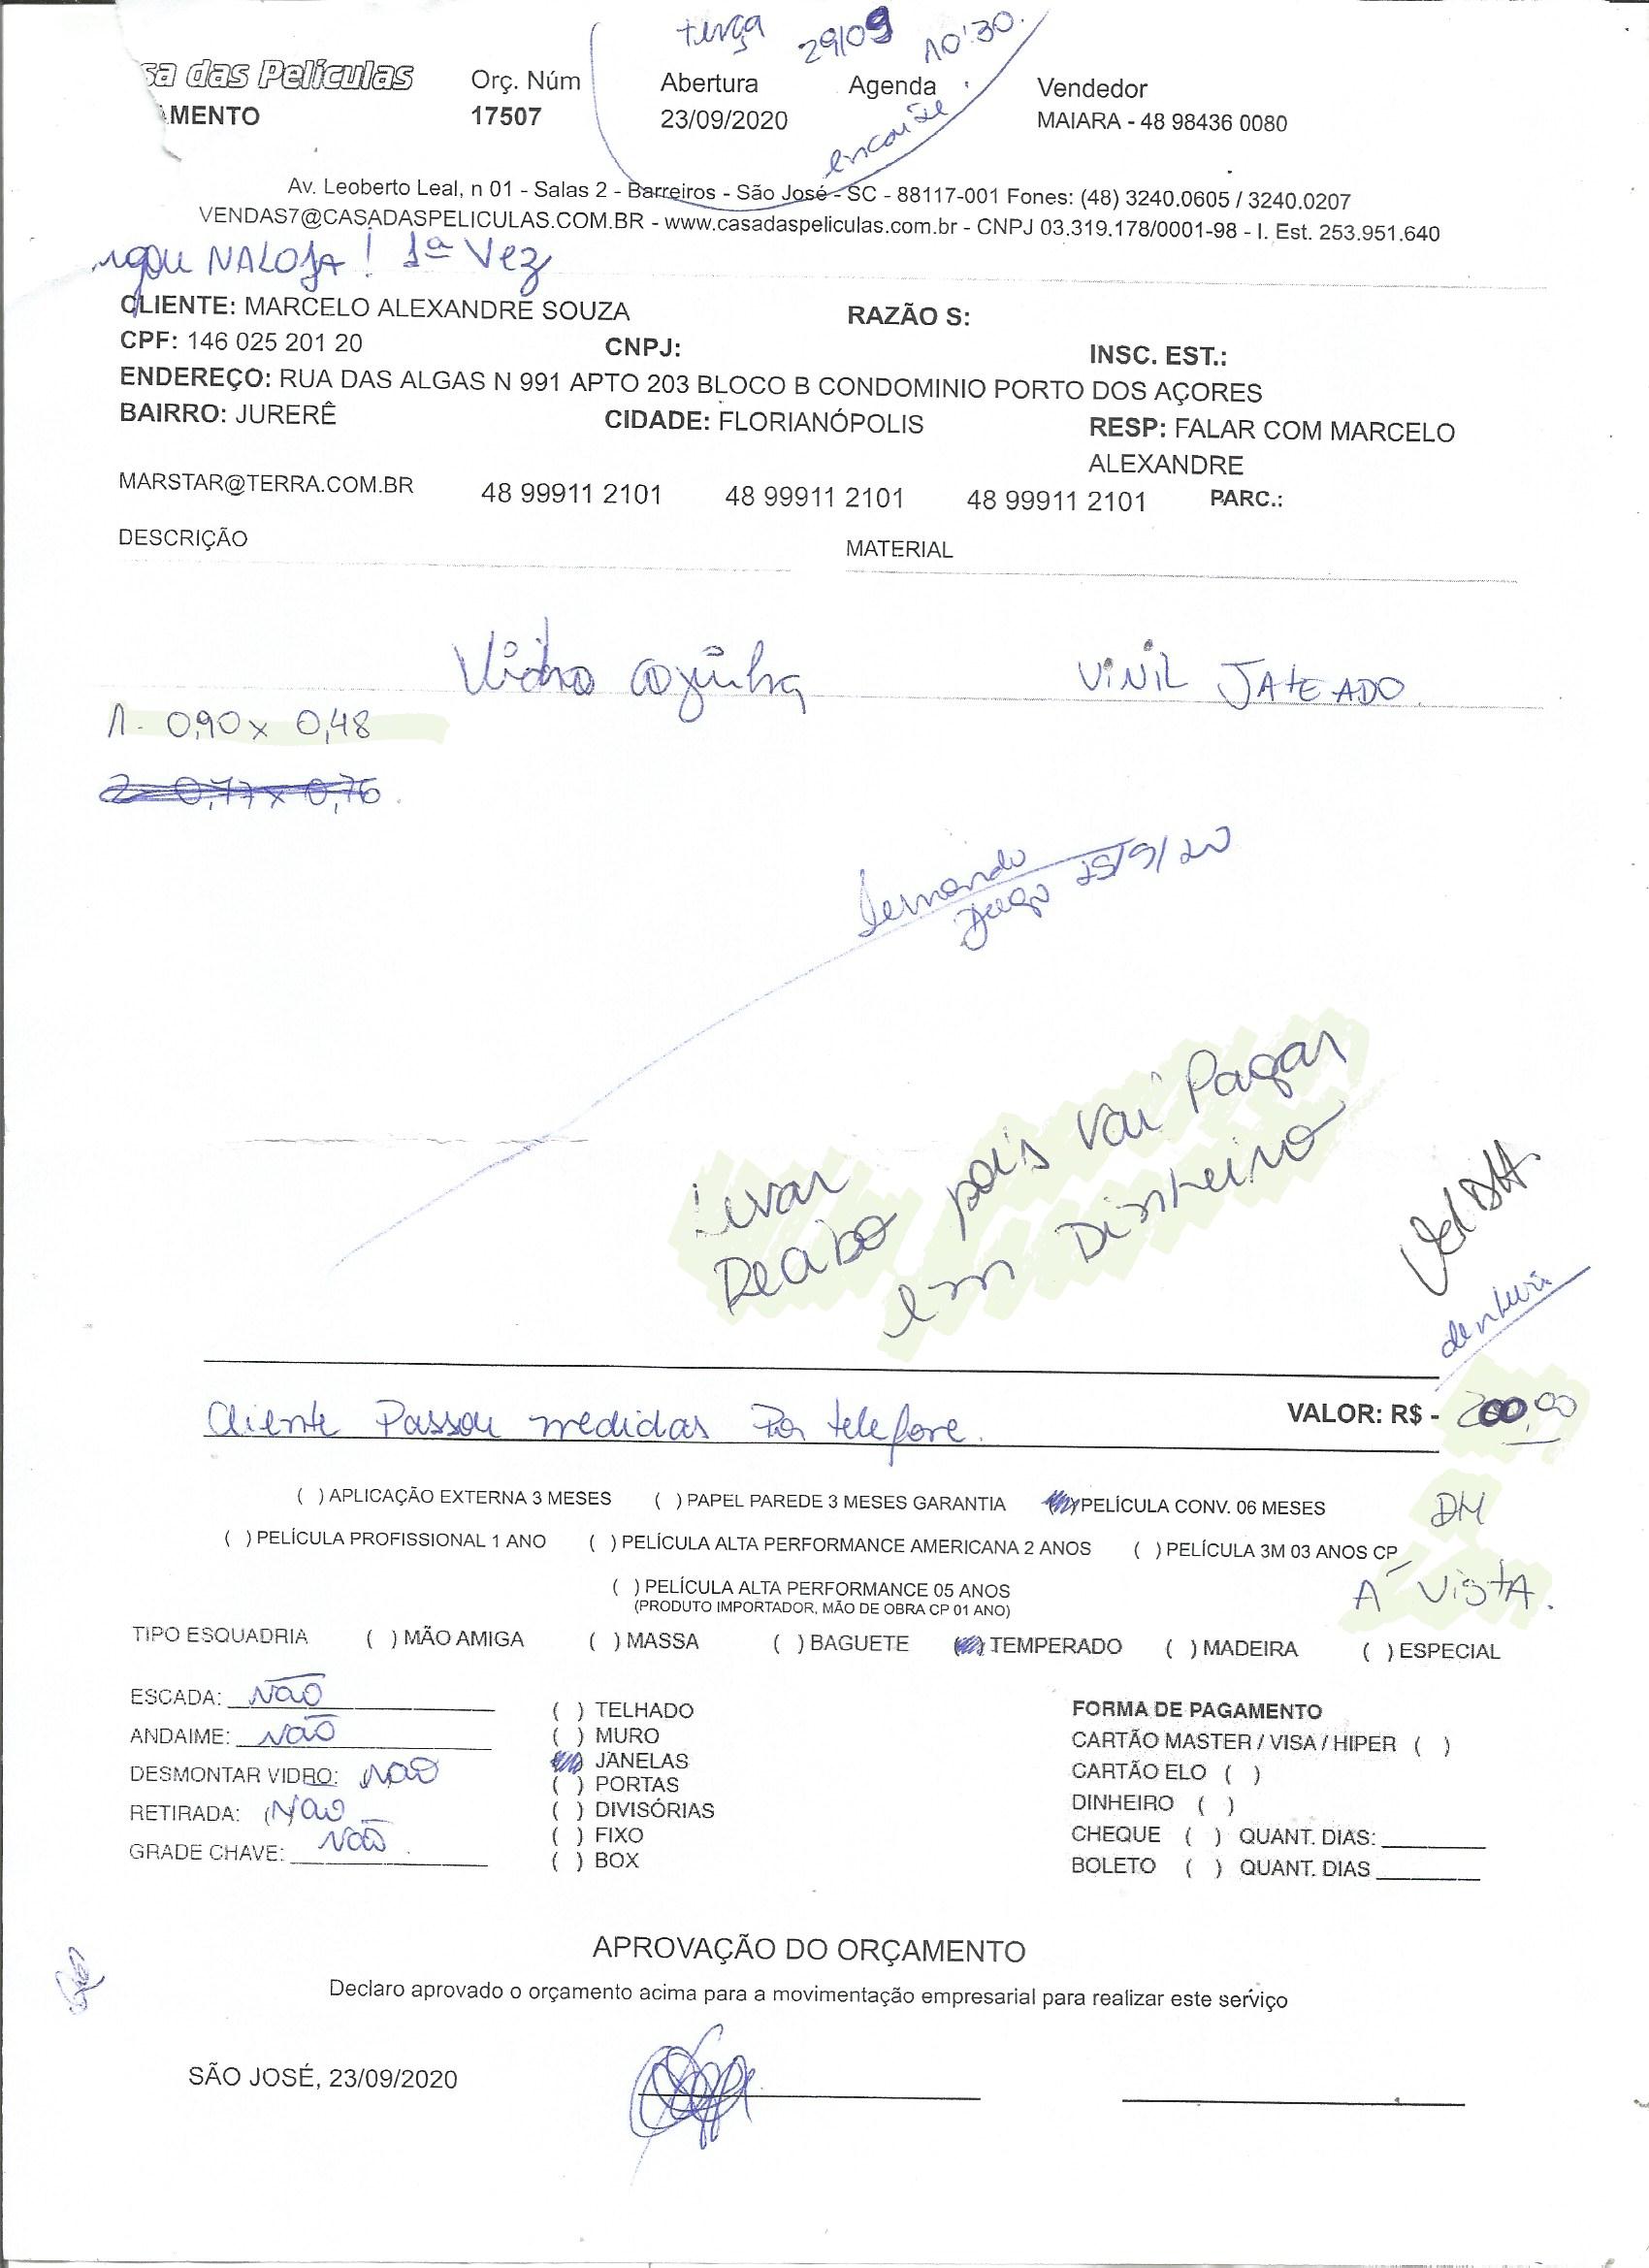 terça 29/09 10:30.
sa das Películas
Orç. Núm Abertura Agenda Vendedor
AMENTO 17507 23/09/2020 MAIARA - 48 98436 0080
encaixe
Av. Leoberto Leal, n 01 - Salas 2 - Barreiros - São José - SC - 88117-001 Fones: (48) 3240.0605 / 3240.0207
VENDAS7@CASADASPELICULAS.COM.BR - www.casadaspeliculas.com.br - CNPJ 03.319.178/0001-98 - I. Est. 253.951.640
NA LOJA! 1ª Vez
CLIENTE: MARCELO ALEXANDRE SOUZA RAZÃO S:
CPF: 146 025 201 20 CNPJ: INSC. EST.:
ENDEREÇO: RUA DAS ALGAS N 991 APTO 203 BLOCO B CONDOMINIO PORTO DOS AÇORES
BAIRRO: JURERÊ CIDADE: FLORIANÓPOLIS RESP: FALAR COM MARCELO
ALEXANDRE
MARSTAR@TERRA.COM.BR 48 99911 2101 48 99911 2101 48 99911 2101 PARC.:
DESCRIÇÃO MATERIAL
Vidro cozinha VINIL JATEADO.
1- 0,90 x 0,48
2- 0,77 x 0,76.
Fernando
25/9/20
Levar
Recibo pois Vai Pagar
em Dinheiro
VALOR: R$ - 200,00
Cliente Passou medidas Por telefone.
( ) APLICAÇÃO EXTERNA 3 MESES ( ) PAPEL PAREDE 3 MESES GARANTIA ( ) PELÍCULA CONV. 06 MESES
DM
( ) PELÍCULA PROFISSIONAL 1 ANO ( ) PELÍCULA ALTA PERFORMANCE AMERICANA 2 ANOS ( ) PELÍCULA 3M 03 ANOS CP
( ) PELÍCULA ALTA PERFORMANCE 05 ANOS
(PRODUTO IMPORTADOR, MÃO DE OBRA CP 01 ANO)
A VISTA.
TIPO ESQUADRIA ( ) MÃO AMIGA ( ) MASSA ( ) BAGUETE ( ) TEMPERADO ( ) MADEIRA ( ) ESPECIAL
ESCADA: NÃO
ANDAIME: NÃO
DESMONTAR VIDRO: NÃO
RETIRADA: NÃO
GRADE CHAVE: NÃO
( ) TELHADO
( ) MURO
( ) JANELAS
( ) PORTAS
( ) DIVISÓRIAS
( ) FIXO
( ) BOX
FORMA DE PAGAMENTO
CARTÃO MASTER / VISA / HIPER ( )
CARTÃO ELO ( )
DINHEIRO ( )
CHEQUE ( ) QUANT. DIAS:
BOLETO ( ) QUANT. DIAS
APROVAÇÃO DO ORÇAMENTO
Declaro aprovado o orçamento acima para a movimentação empresarial para realizar este serviço
SÃO JOSÉ, 23/09/2020